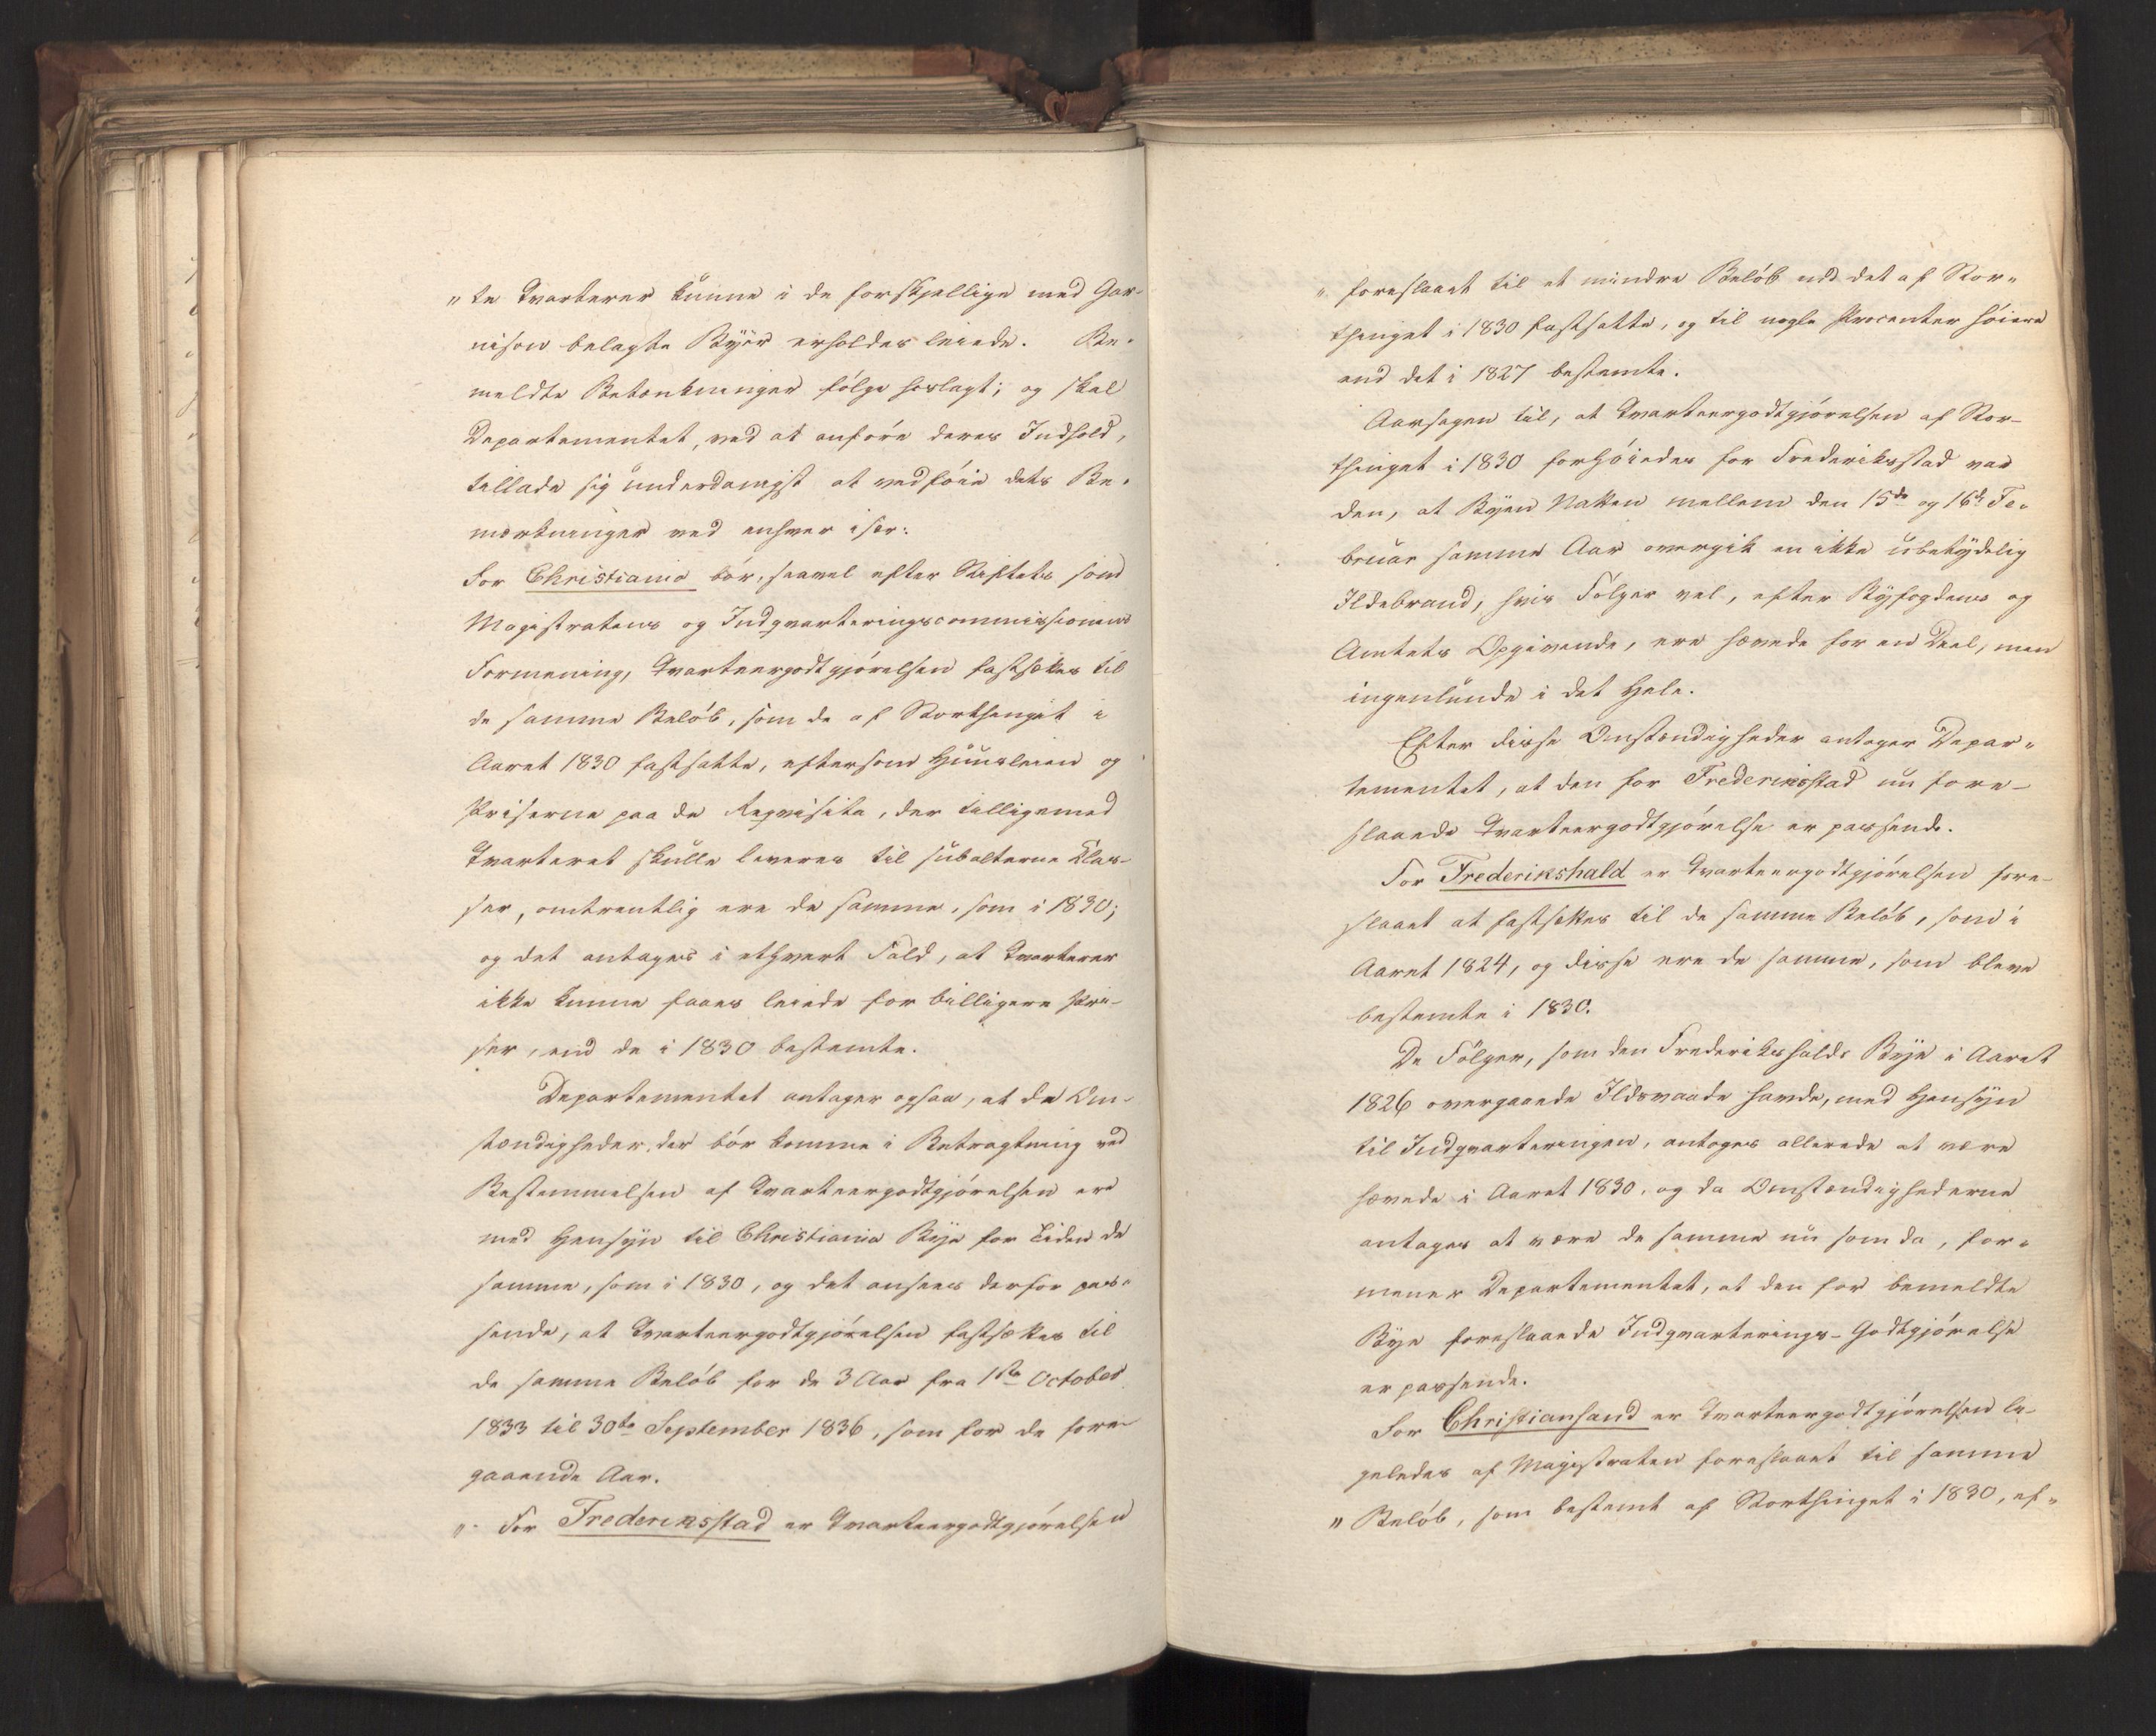 "te Qvarterer kunne i de forskjellige med Gar-
nison belagte Byer erholdes leiede. Be-
meldte Betænkninger følge hoslagt; og skal
Departementet, ved at anføre deres Indhold,
tillade sig underdanigst at vedføie dets Be-
mærkninger ved enhver især:
For Christiania bør, saavel efter Stiftets som
Magistratens og Indqvarteringscommissionens
Formening, Qvarteergodtgjørelsen fastsættes til
de samme Beløb, som de af Storthinget i
Aaret 1830 fastsatte, eftersom Huusleien og
Priserne paa de Reqvisita, der tilligemed
Qvarteret skulle leveres til subalterne Clas-
ser, omtrentlig ere de samme, som i 1830;
og det antages i ethvert Fald, at Qvarterer
ikke kunne faaes leiede for billigere Pri-
ser, end de i 1830 bestemte.
Departementet antager ogsaa, at de Om-
stændigheder, der bør komme i Betragtning ved
Bestemmelsen af Qvarteergodtgjørelsen ere
med Hensyn til Christiania Bye for Tiden de
samme, som i 1830, og det ansees derfor pas-
sende, at Qvarteergodtgjørelsen fastsættes til
de samme Beløb for de 3 Aar fra 1ste October
1833 til 30te September 1836, som for de fore-
gaaende Aar.
" For Frederiksstad er Qvarteergodtgjørelsen
" foreslaaet til et mindre Beløb end det af Stor-
thinget i 1830 fastsatte, og til nogle Procenter høiere
end det i 1827 bestemte.
Aarsagen til, at Qvarteergodtgjørelsen af Stor-
thinget i 1830 forhøiedes for Frederiksstad var
den, at Byen Natten mellem den 15de og 16de Fe-
bruar samme Aar overgik en ikke ubetydelig
Ildebrand, hvis Følger vel, efter Byfogdens og
Amtets Opgivende, ere hævede for en Deel, men
ingenlunde i det Hele.
Efter disse Omstændigheder antager Depar-
tementet, at den for Frederiksstad nu fore-
slaaede Qvarteergodtgjørelse er passende.
For Frederikshald er Qvarteergodtgjørelsen fore-
slaaet at fastsættes til de samme Beløb, som i
Aaret 1824, og disse ere de samme, som bleve
bestemte i 1830.
De Følger, som den Frederikshalds Bye i Aaret
1826 overgaaede Ildsvaade havde, med Hensyn
til Indqvarteringen, antoges allerede at være
hævede i Aaret 1830, og da Omstændighederne
antages at være de samme nu som da, for-
mener Departementet, at den for bemeldte
Bye foreslaaede Indqvarterings-Godtgjørelse
er passende.
For Christiansand er Qvarteergodtgjørelsen li-
geledes af Magistraten foreslaaet til samme
" Beløb, som bestemt af Storthinget i 1830, ef-